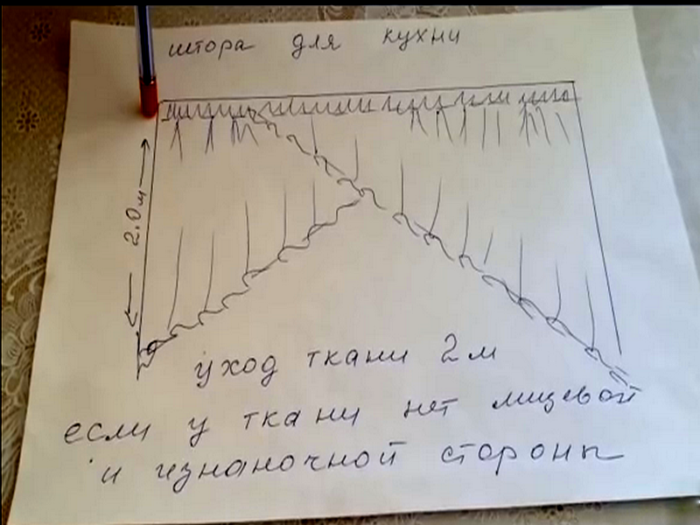 штора для кухни
2.0м
уход ткани 2 м
если у ткани нет лицевой
и изнаночной стороны